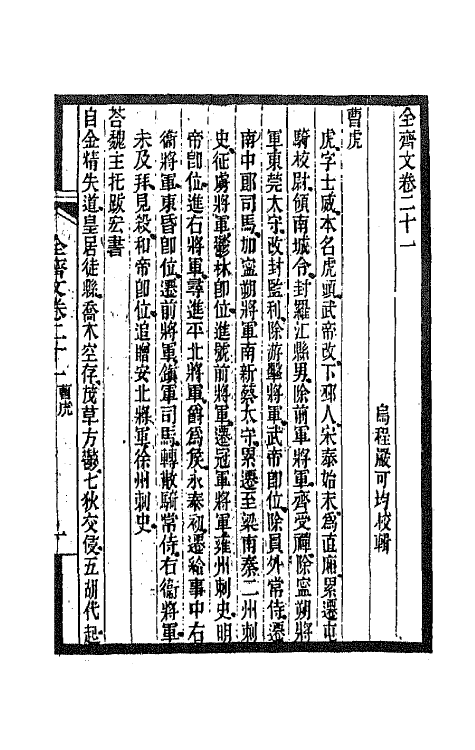 全齊文卷二十一
烏程嚴可均校輯
曹虎
虎字士威本名虎頭武帝改下邳人宋泰始末爲直廂累遷屯
騎校尉領南城令封羅江縣男除前軍將軍齊受禪除寧朔將
軍東莞太守改封監利除游擊將軍武帝卽位除員外常侍遷
南中郎司馬加寧朔將軍南新蔡太守累遷至梁南秦二州刺
史征虜將軍鬱林卽位進號前將軍遷冠軍將軍雍州刺史明
帝卽位進右將軍尋進平北將軍爵爲侯永泰初遷給事中右
衛將軍東昏卽位遷前將軍鎭軍司馬轉散騎常侍右衞將軍
未及拜見殺和帝卽位追贈安北將軍徐州刺史
荅魏主托跋宏書
自金精失道皇居徙縣喬木空存茂草方鬱七狄交侵五胡代起
全齊文卷二十一 曹虎
一